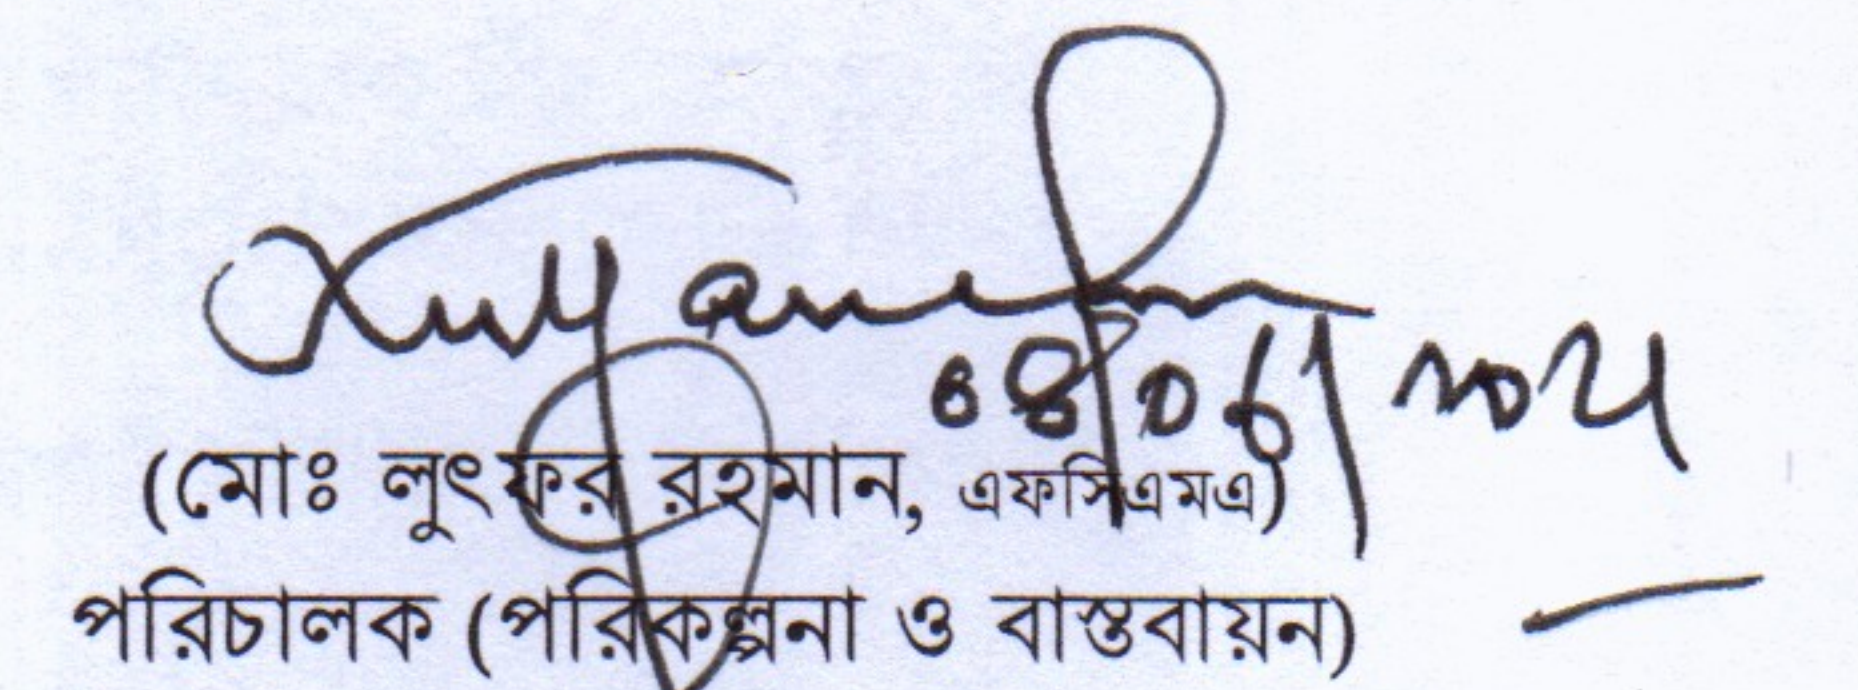 (মোঃ লুৎফর রহমান, এফসিএমএ)
পরিচালক (পরিকল্পনা ও বাস্তবায়ন)